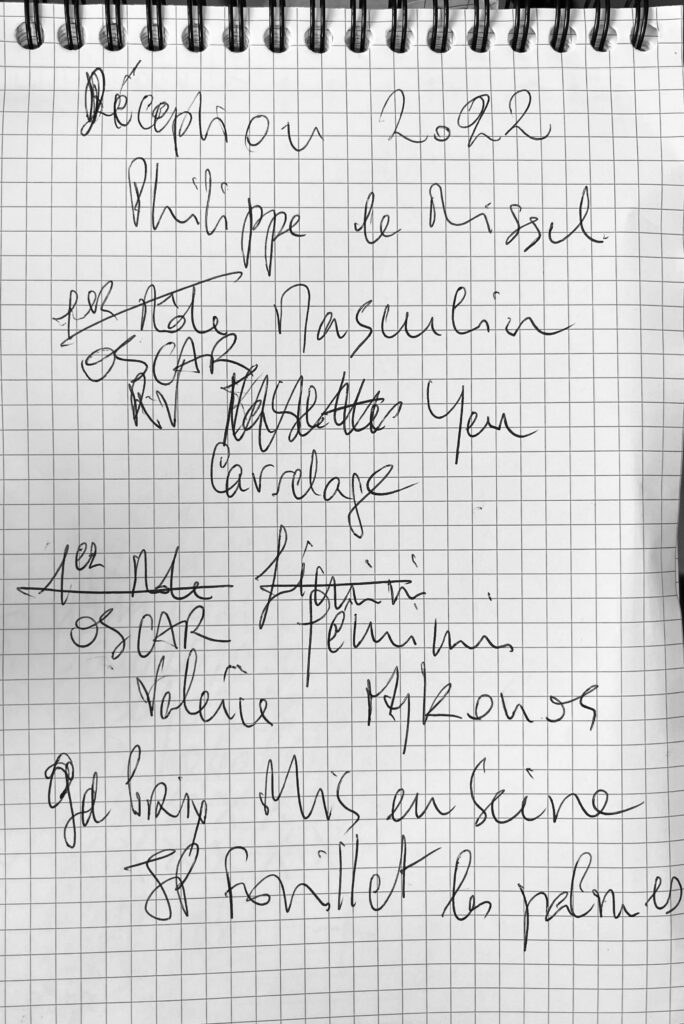 Réception 2022
Philippe le Missel
1er Rôle Masculin
OSCAR
RV Yeu
Carrelage
1er Rôle féminin
OSCAR féminin
Valérie Mykonos
Gd Prix Mis en Seine
JP fouillet les palmes